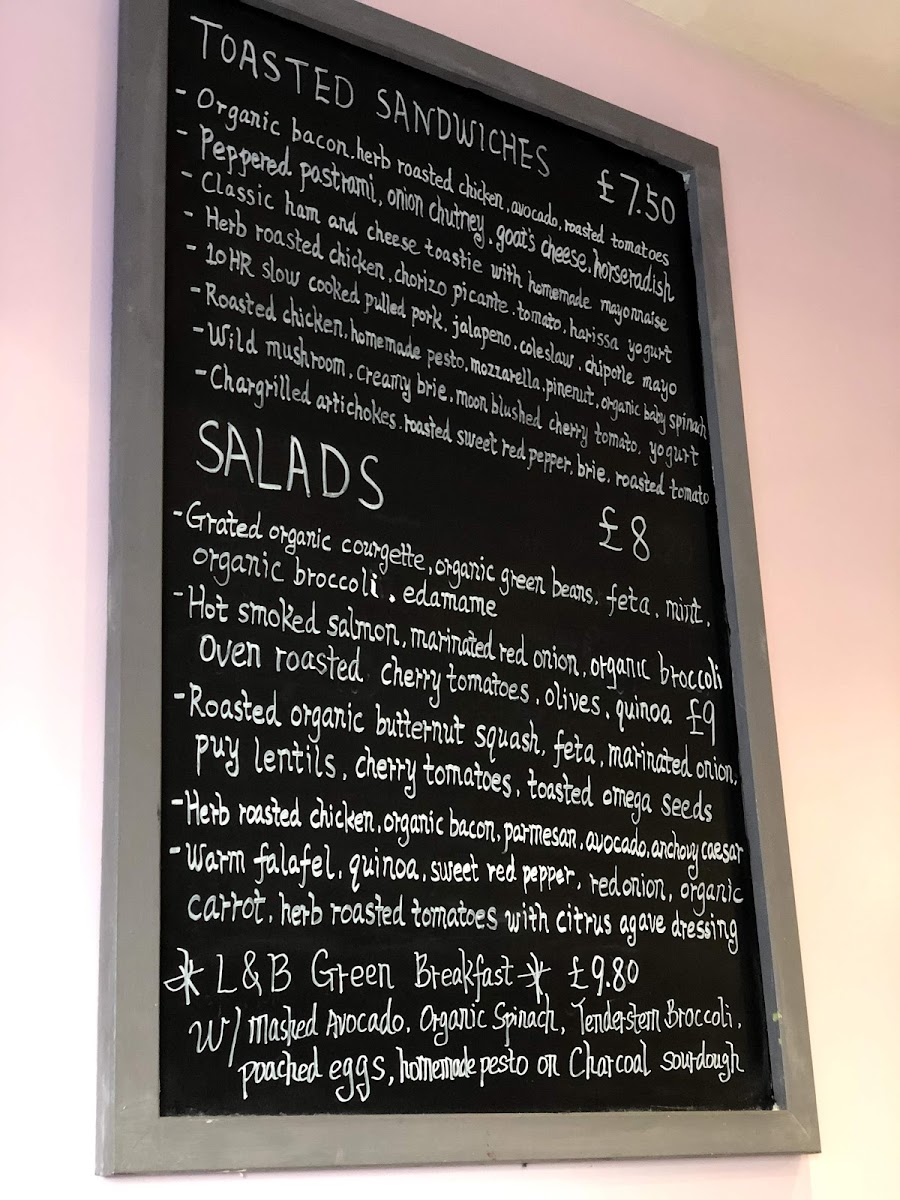 TOASTED SANDWICHES £7.50
- Organic bacon, herb roasted chicken, avocado, roasted tomatoes
- Peppered pastrami, onion chutney, goat's cheese, horseradish
- Classic ham and cheese toastie with homemade mayonnaise
- Herb roasted chicken, chorizo picante, tomato, harissa yogurt
- 10HR slow cooked pulled pork, jalapeno, coleslaw, chipotle mayo
- Roasted chicken, homemade pesto, mozzarella, pinenut, organic baby spinach
- Wild mushroom, creamy brie, moon blushed cherry tomato, yogurt
- Chargrilled artichokes, roasted sweet red pepper, brie, roasted tomato
SALADS £8
- Grated organic courgette, organic green beans, feta, mint,
organic broccoli, edamame
- Hot smoked salmon, marinated red onion, organic broccoli
Oven roasted cherry tomatoes, olives, quinoa £9
- Roasted organic butternut squash, feta, marinated onion,
puy lentils, cherry tomatoes, toasted omega seeds
- Herb roasted chicken, organic bacon, parmesan, avocado, anchovy caesar
- Warm falafel, quinoa, sweet red pepper, red onion, organic
carrot, herb roasted tomatoes with citrus agave dressing
* L&B Green Breakfast * £9.80
W/ Mashed Avocado, Organic Spinach, Tenderstem Broccoli,
poached eggs, homemade pesto on Charcoal sourdough